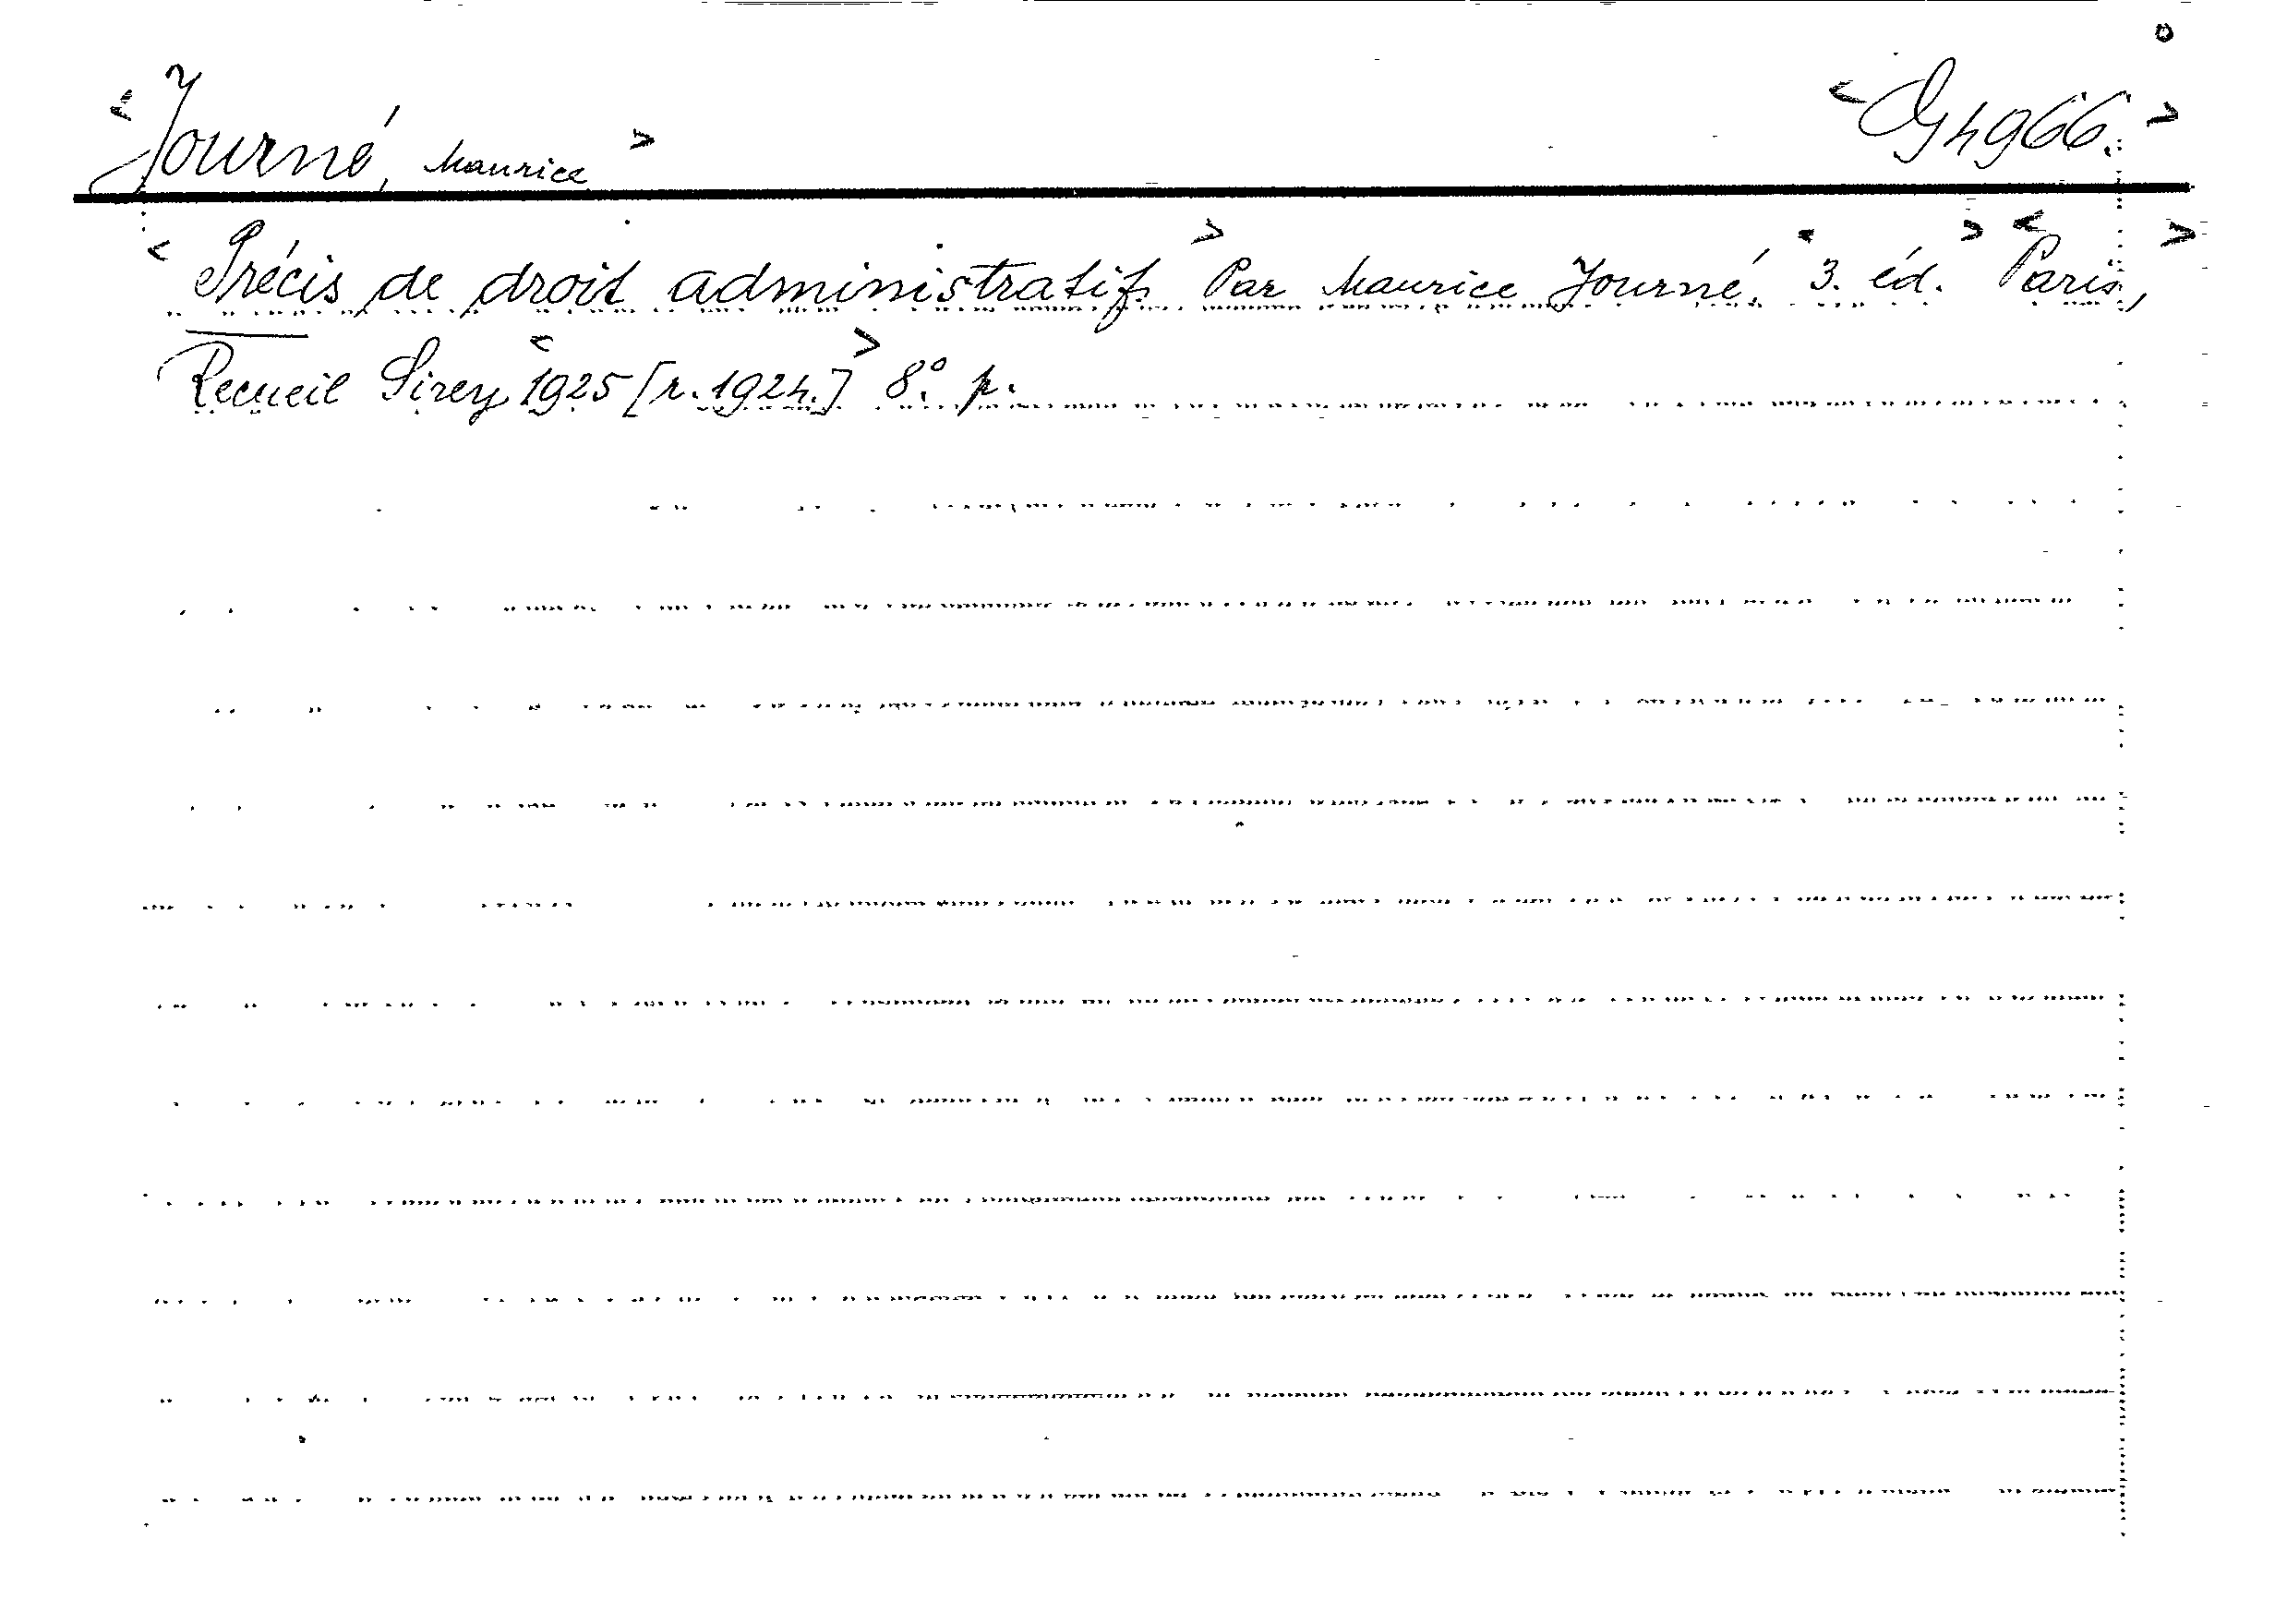 <Journé, Maurice> <Og 4966.>
<Précis de droit administratif> Par Maurice Journé. <3. éd.> <Paris,>
Recueil Sirey <1925 [r. 1924.]> 8° p.